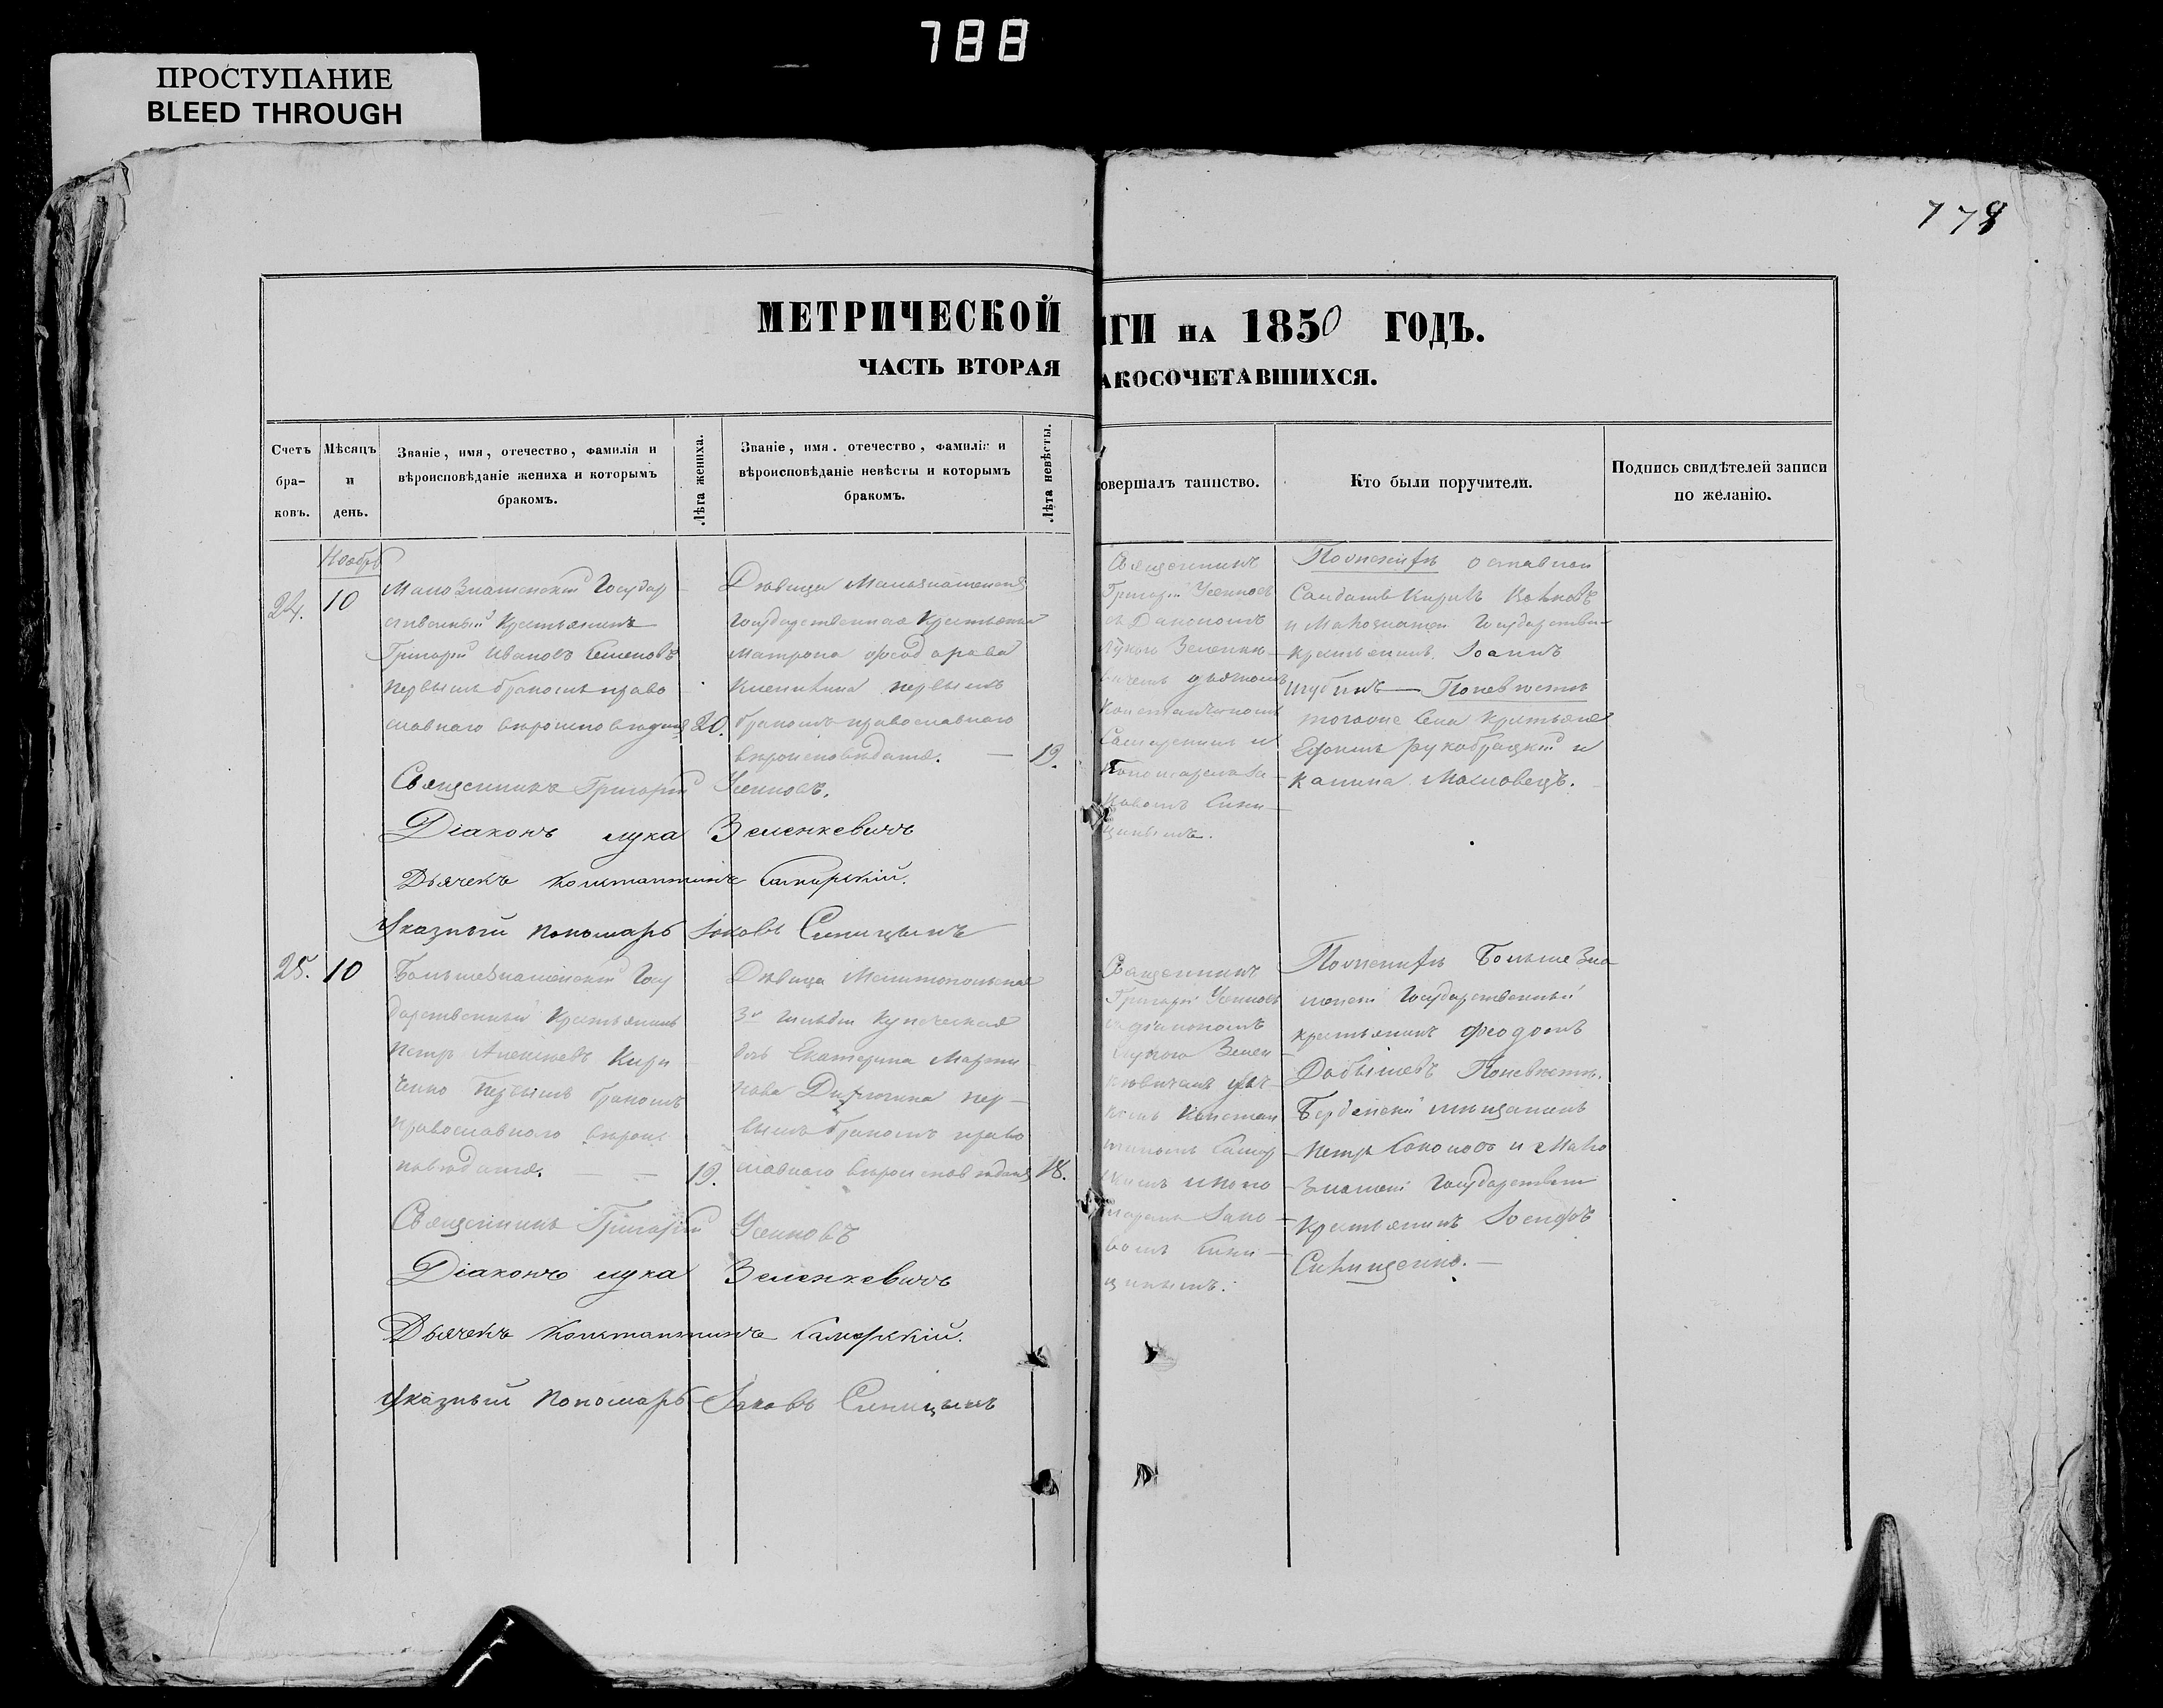 788
ПРОСТУПАНИЕ
BLEED THROUGH
778
МЕТРИЧЕСКОЙ
ГИ НА 1850 ГОДЪ.
ЧАСТЬ ВТОРАЯ
АКОСОЧЕТАВШИХСЯ.
Счетъ бра-ковъ.
Мѣсяцъ и день.
Званіе, имя, отечество, фамилія и
вѣроисповѣданіе жениха и которымъ
бракомъ.
Лѣта жениха.
Званіе, имя. отечество, фамилія и
вѣроисповѣданіе невѣсты и которымъ
бракомъ.
Лѣта невѣсты.
овершалъ таинство.
Кто были поручители.
Подпись свидѣтелей записи
по желанію.
Ноябрь
24. 10
Малознаменскій Государ
ственный Крестьянинъ
Григорій Ивановъ Семеновъ
первымъ бракомъ право
славнаго вѣроисповѣданія 20.
Дѣвица Малознаменская
Государственная Крестьянка
Матрона
первымъ
бракомъ православнаго
вѣроисповѣданія. — 19.
Священникъ
Григорій
съ Діакономъ
Лукою Зеленке
вичемъ дьячкомъ
Константиномъ
Самарскимъ и
Пономаремъ Іа
ковомъ Сини
цинымъ.
По женихѣ отставной
Солдатъ
и Малознамен Государствен
крестьянинъ Іоаннъ
По невѣстѣ
тогоже села крестьяне
Ефимъ и
Священникъ Григорій
Діаконъ Лука Зеленкевичъ
Дьячекъ Константинъ Самарскій.
Указный Пономарь Іаковъ Синицынъ
25. 10
Большезнаменскій Госу
дарственный Крестьянинъ
Петръ Алексѣевъ Кири
ченко первымъ бракомъ
православнаго вѣроис
повѣданія. — — 19.
Дѣвица Мелитопольская
3й гильдіи Купеческая
дочь Екатерина Марти
нова пер
вымъ бракомъ право
славнаго вѣроисповѣданія 18.
Священникъ
Григорій
съ діакономъ
Лукою Зелен
кевичемъ дьяч
комъ Констан
тиномъ Самар
скимъ и поно
маремъ Іако
вомъ Сини
цинымъ.
По женихѣ Больше Зна
менскій Государственный
крестьянинъ Феодоръ
По невѣстѣ
Бердянскій мѣщанинъ
Петръ и Мало
Знаменскі Государствен
крестьянинъ Іосифъ
Священникъ Григорій
Діаконъ Лука Зеленкевичъ
Дьячекъ Константинъ Самарскій.
Указный Пономарь Іаковъ Синицынъ